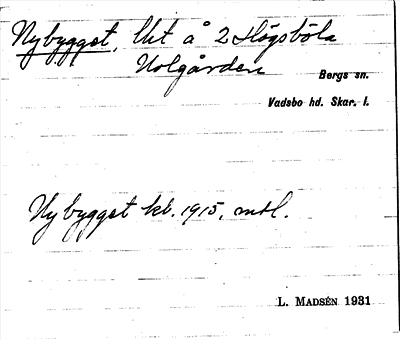 Nybygget, lht å 2 Högsböla
Holgården Bergs sn.
Vadsbo hd. Skar. l.
Nybygget kb. 1915, mtl.
L. MADSÉN 1931